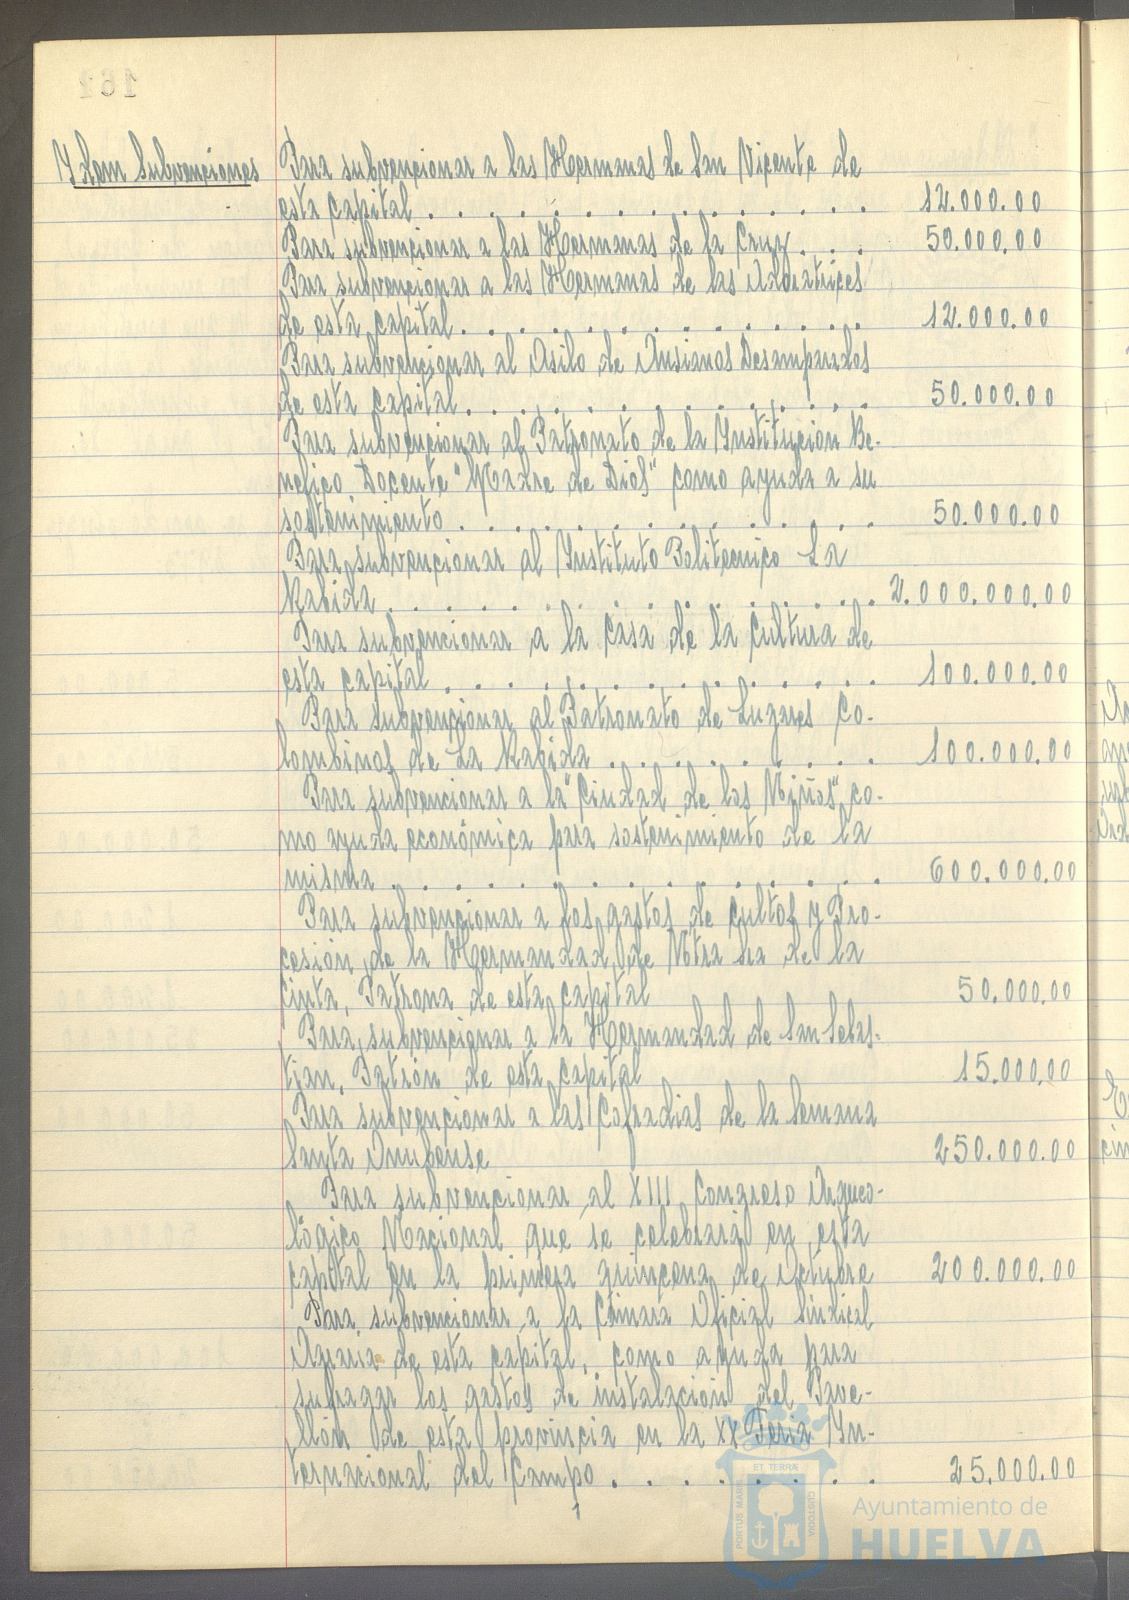 Ydem Subvenciones
Para subvencionar a las Hermanas de San Vicente de
esta capital . . . . . . . . . . . . . . 12.000.00
Para subvencionar a las Hermanas de la Cruz . . . 50.000.00
Para subvencionar a las Hermanas de las Adoratrices
de esta capital . . . . . . . . . . . . . 12.000.00
Para subvencionar al Asilo de Ansianos Desamparados
de esta capital . . . . . . . . . . . . . 50.000.00
Para subvencionar al Patronato de la Ynstitucion Be-
nefico Docente "Madre de Dios" como ayuda a su
sostenimiento . . . . . . . . . . . . . 50.000.00
Para subvencionar al Ynstituto Politecnico La
Rabida . . . . . . . . . . . . . . . 2.000.000.00
Para subvencionar a la Casa de la Cultura de
esta capital . . . . . . . . . . . . . . 100.000.00
Para subvencionar al Patronato de Lugares Co-
lombinos de La Rabida . . . . . . . . . 100.000.00
Para subvencionar a la "Ciudad de los Niños" co-
mo ayuda económica para sostenimiento de la
misma . . . . . . . . . . . . . . . 600.000.00
Para subvencionar a los gastos de cultos y Pro-
cesión de la Hermandad de Ntra Sra de la
Cinta, Patrona de esta capital 50.000,00
Para subvencionar a la Hermandad de San Sebas-
tian, Patrón de esta capital 15.000,00
Para subvencionar a las Cofradias de la Semana
Santa Onubense 250.000.00
Para subvencionar al XIII Congreso Arqueo-
lógico Nacional que se celebrará en esta
capital en la primera quincena de Octubre 200.000.00
Para subvencionar a la Cámara Oficial Sindical
Agraria de esta capital, como ayuda para
sufragar los gastos de instalación del Pave-
llón de esta provincia en la XX Feria Yn-
ternacional del Campo . . . . . . . . 25.000.00
ET TERRÆ
PORTUS MARIS
CUSTODIA
Ayuntamiento de
HUELVA